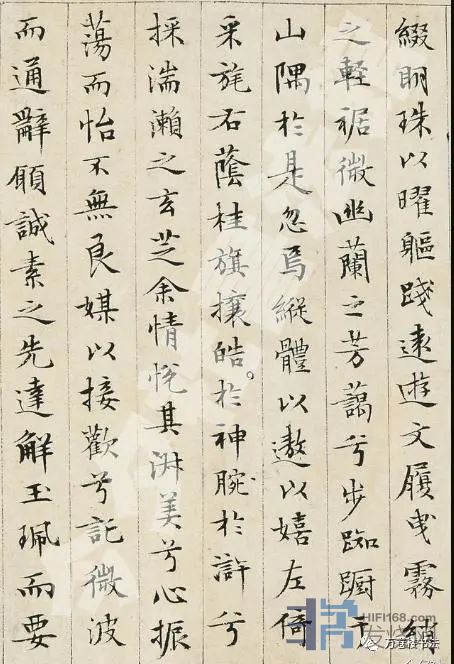 綴明珠以曜軀踐遠遊文履曳霧綃
之輕裾微幽蘭之芳藹兮步踟躕于
山隅於是忽焉縱體以遨以嬉左倚
采旄右蔭桂旗攘皓於神腕於滸兮
採湍瀨之玄芝余情悅其淋美兮心振
蕩而怡不無良媒以接歡兮託微波
而通辭願誠素之先達解玉珮而要
HIFI168.com
发烧